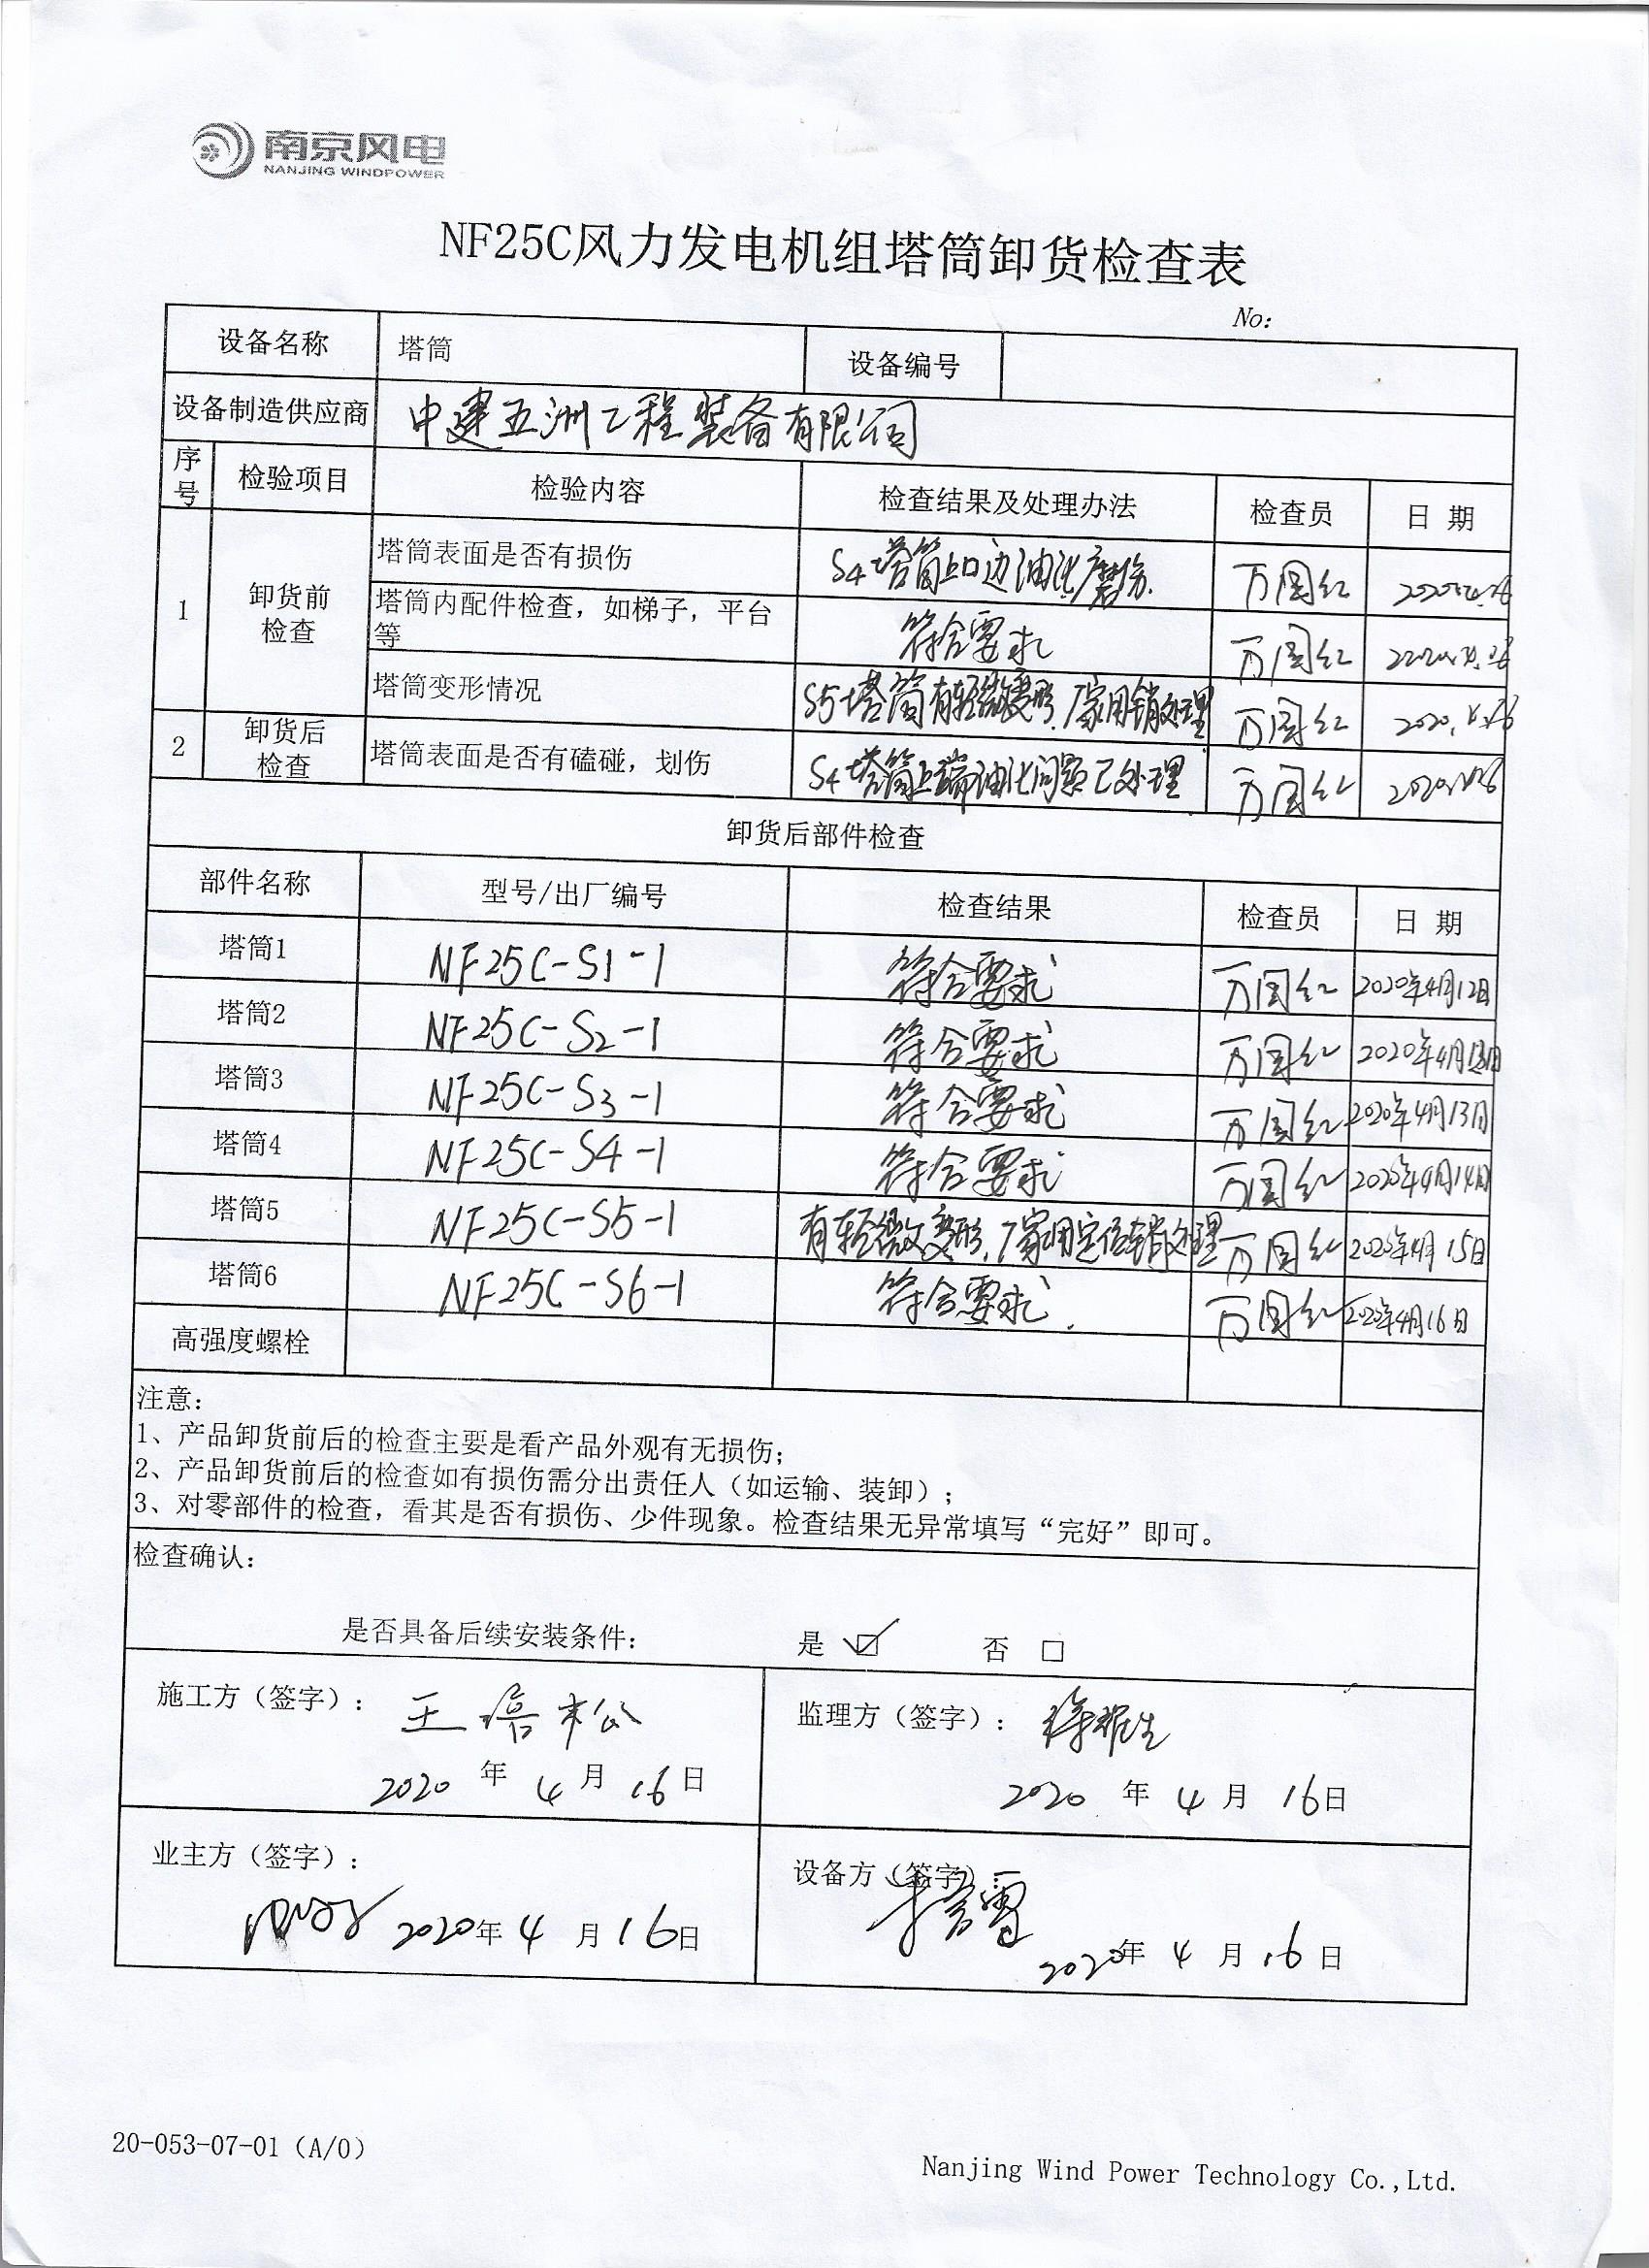 南京风电
NANJING WINDPOWER
NF25C风力发电机组塔筒卸货检查表
No:
设备名称 塔筒 设备编号
设备制造供应商 中建五洲工程装备有限公司
序号 检验项目 检验内容 检查结果及处理办法 检查员 日 期
1 卸货前检查 塔筒表面是否有损伤 S4塔筒上口边油漆磨伤. 万国红
塔筒内配件检查，如梯子，平台等 符合要求 万国红
塔筒变形情况 S5塔筒有轻微变形.厂家用销处理 万国红
2 卸货后检查 塔筒表面是否有磕碰，划伤 S4塔筒上端油漆问题已处理 万国红
卸货后部件检查
部件名称 型号/出厂编号 检查结果 检查员 日 期
塔筒1 NF25C-S1-1 符合要求 万国红 2020年4月12日
塔筒2 NF25C-S2-1 符合要求 万国红 2020年4月13日
塔筒3 NF25C-S3-1 符合要求 万国红 2020年4月13日
塔筒4 NF25C-S4-1 符合要求 万国红 2020年4月14日
塔筒5 NF25C-S5-1 有轻微变形.厂家用定位销处理 万国红 2020年4月15日
塔筒6 NF25C-S6-1 符合要求. 万国红 2020年4月16日
高强度螺栓
注意：
1、产品卸货前后的检查主要是看产品外观有无损伤；
2、产品卸货前后的检查如有损伤需分出责任人（如运输、装卸）；
3、对零部件的检查，看其是否有损伤、少件现象。检查结果无异常填写“完好”即可。
检查确认：
是否具备后续安装条件： 是 ☑ 否 □
施工方（签字）： 监理方（签字）：
2020 年 4 月 16 日 2020 年 4 月 16日
业主方（签字）： 设备方（签字）：
2020年 4 月 16日 2020年 4 月 16 日
20-053-07-01（A/0）
Nanjing Wind Power Technology Co.,Ltd.